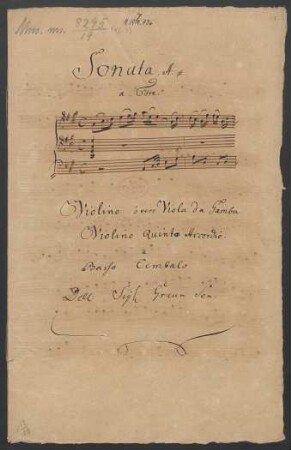 Mus. ms. 8295
19
Sonata A #
a Tre
Violino ò vero Viola da Gamba
Violino Quinto Accordio
è
Basso Cembalo
Dell Sigl Graun Sen: